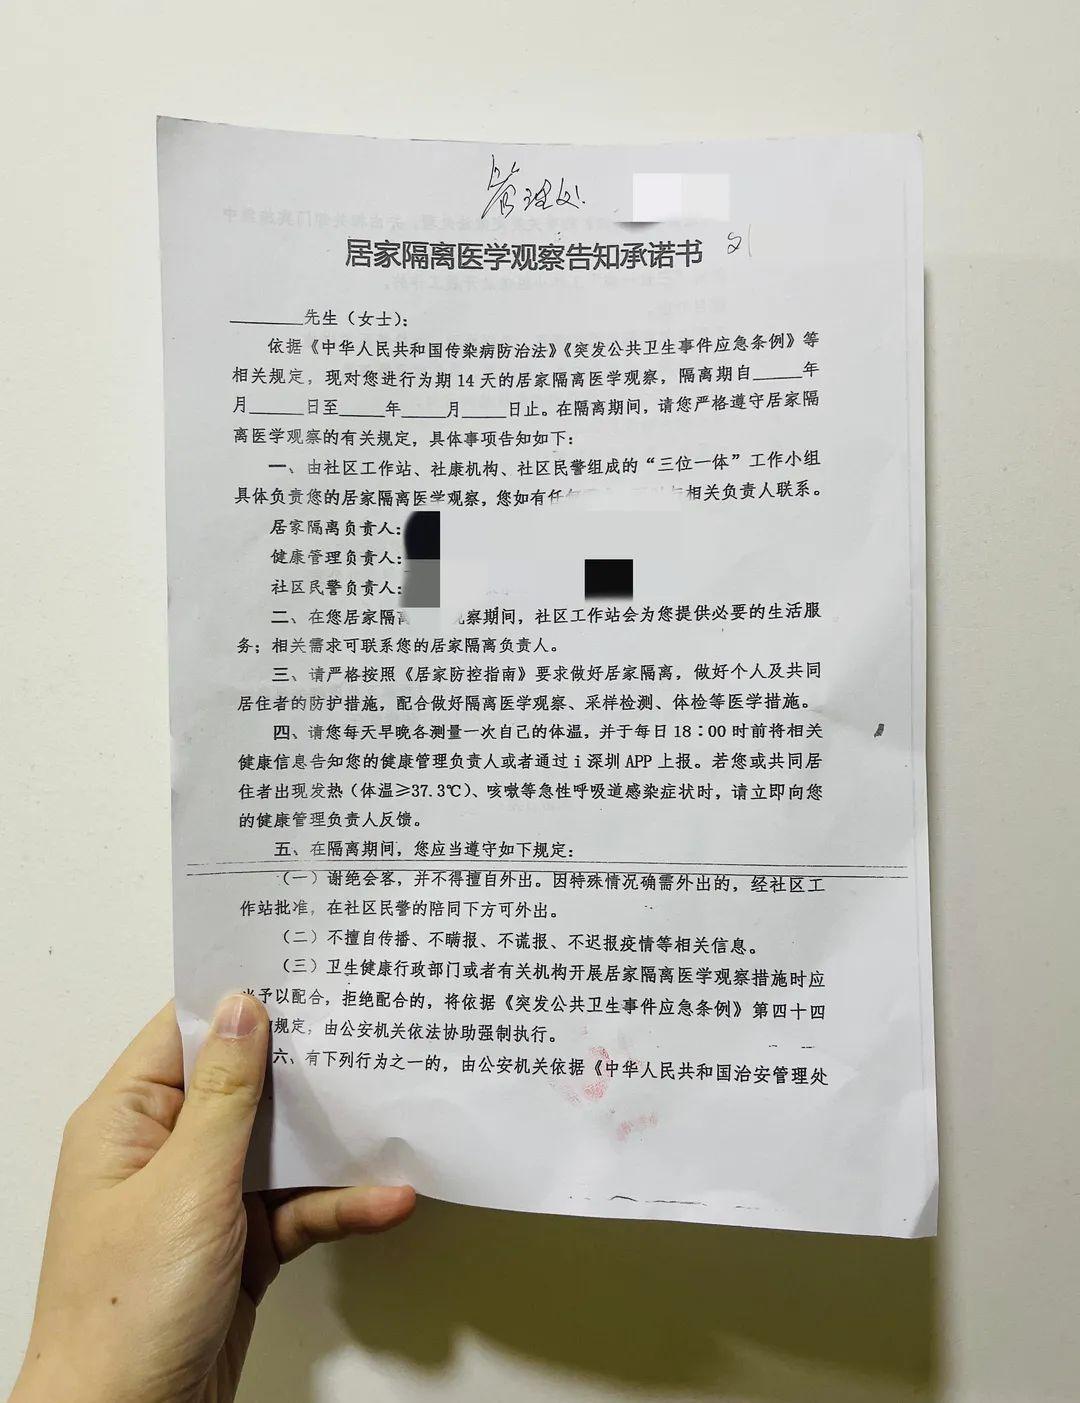 管理处
居家隔离医学观察告知承诺书
刘
______先生（女士）：
依据《中华人民共和国传染病防治法》《突发公共卫生事件应急条例》等
相关规定，现对您进行为期 14 天的居家隔离医学观察，隔离期自____年
月____日至____年____月____日止。在隔离期间，请您严格遵守居家隔
离医学观察的有关规定，具体事项告知如下：
一、由社区工作站、社康机构、社区民警组成的“三位一体”工作小组
具体负责您的居家隔离医学观察，您如有任 相关负责人联系。
居家隔离负责人：
健康管理负责人：
社区民警负责人：
二、在您居家隔离 观察期间，社区工作站会为您提供必要的生活服
务；相关需求可联系您的居家隔离负责人。
三、请严格按照《居家防控指南》要求做好居家隔离，做好个人及共同
居住者的防护措施，配合做好隔离医学观察、采样检测、体检等医学措施。
四、请您每天早晚各测量一次自己的体温，并于每日 18：00 时前将相关
健康信息告知您的健康管理负责人或者通过 i 深圳 APP 上报。若您或共同居
住者出现发热（体温≥37.3℃）、咳嗽等急性呼吸道感染症状时，请立即向您
的健康管理负责人反馈。
五、在隔离期间，您应当遵守如下规定：
（一）谢绝会客，并不得擅自外出。因特殊情况确需外出的，经社区工
作站批准，在社区民警的陪同下方可外出。
（二）不擅自传播、不瞒报、不谎报、不迟报疫情等相关信息。
（三）卫生健康行政部门或者有关机构开展居家隔离医学观察措施时应
当予以配合，拒绝配合的，将依据《突发公共卫生事件应急条例》第四十四
规定，由公安机关依法协助强制执行。
六、有下列行为之一的，由公安机关依据《中华人民共和国治安管理处